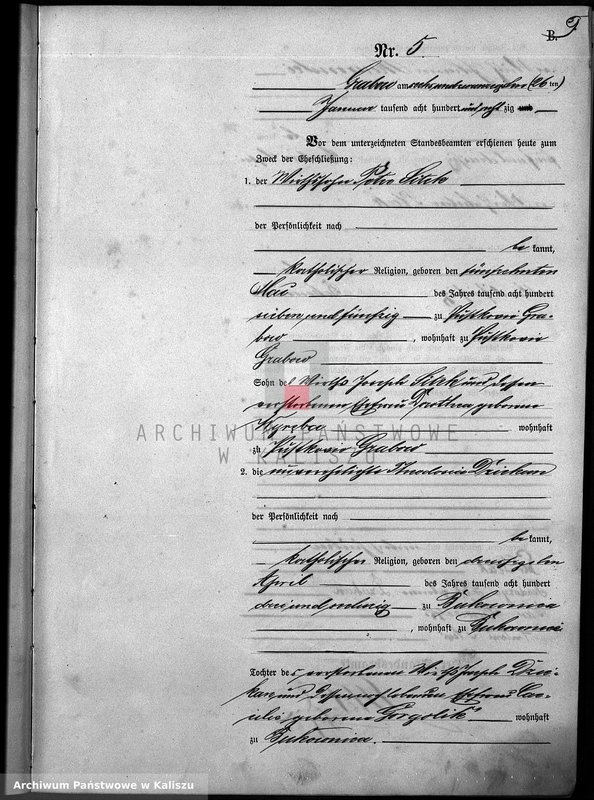 B. 5
Nr. 5
Grabow am sechsundzwanzigsten (26 ten)
Januar tausend acht hundert und acht zig
Vor dem unterzeichneten Standesbeamten erschienen heute zum
Zweck der Eheschließung:
1. der Wirthssohn
der Persönlichkeit nach
be kannt,
katholischer Religion, geboren den fünfzehnten
Mai des Jahres tausend acht hundert
sieben und fünfzig zu Pustkowie Gra-
bow, wohnhaft zu Pustkowie
Grabow
Sohn des Wirths Joseph und dessen
verstorbenen Ehefrau Dorothea geborene
wohnhaft
zu Pustkowie Grabow
2. die unverehelichte
der Persönlichkeit nach
be kannt,
katholischer Religion, geboren den
April des Jahres tausend acht hundert
drei und zu Bukownica
, wohnhaft zu Bukownica
Tochter des verstorbenen Wirths Joseph
und dessen Ehefrau Cae-
cilie geborene Gorgolik wohnhaft
zu Bukownica.
ARCHIWUM PAŃSTWOWE
W KALISZU
Archiwum Państwowe w Kaliszu